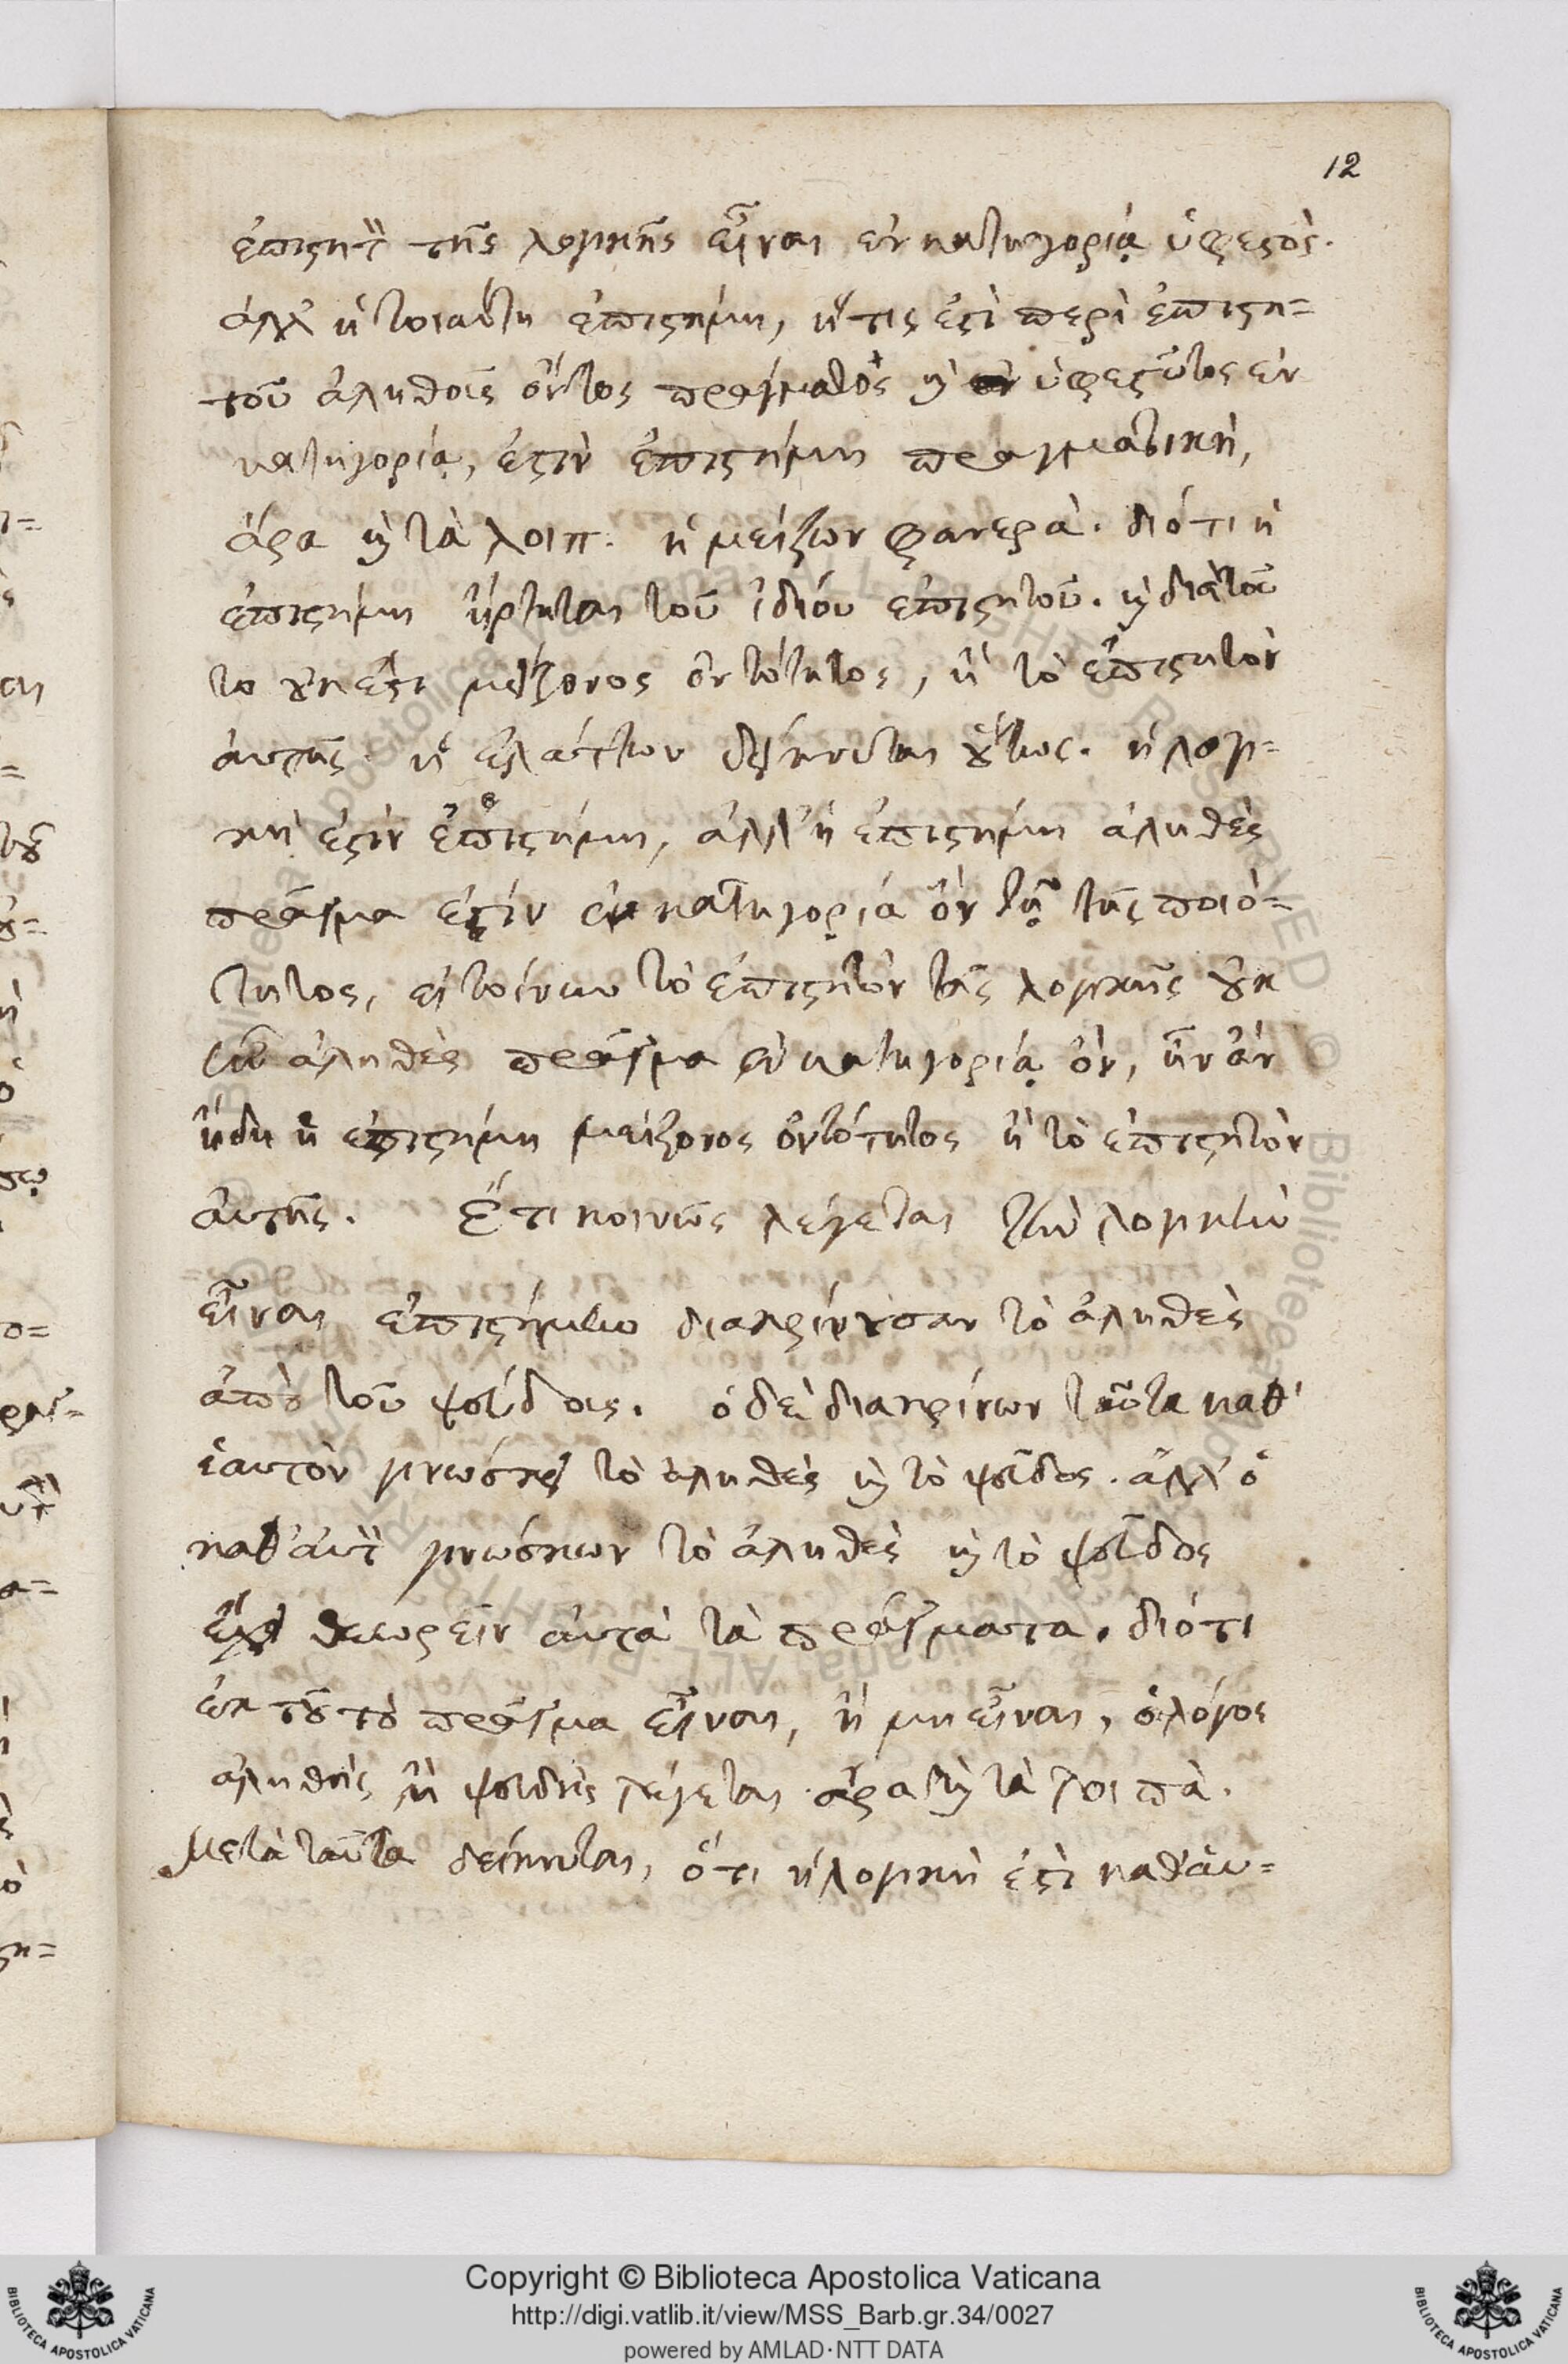 12
ἐπιστητὸν τῆς λογικῆς εἶναι ἐν κατηγορίᾳ ὑφεστός.
ἀλλ' ἡ τοιαύτη ἐπιστήμη, ἥτις ἐστὶ περὶ ἐπιστη=
τοῦ ἀληθοῦς ὄντος πράγματος καὶ ὑφεστῶτος ἐν
κατηγορίᾳ, ἐστὶν ἐπιστήμη πραγματικὴ,
ἄρα καὶ τὰ λοιπ. ἡ μείζων φανερὰ. διότι ἡ
ἐπιστήμη ἤρτηται τοῦ ἰδίου ἐπιστητοῦ. καὶ διὰ τοῦ
το οὐκ ἔστι μείζονος ὀντότητος, ἢ τὸ ἐπιστητὸν
αὐτῆς. ἡ ἐλάττων δείκνυται οὕτως. ἡ λογι=
κὴ ἐστὶν ἐπιστήμη, ἀλλ' ἡ ἐπιστήμη ἀληθὲς
πρᾶγμα ἐστὶν ἐν κατηγορίᾳ ὂν τῇ τῆς ποιό=
τητος, εἰ τοίνυν τὸ ἐπιστητὸν τῆς λογικῆς οὐκ
ἦν ἀληθὲς πρᾶγμα ἐν κατηγορίᾳ ὂν, ἦν ἂν
ἤδη ἡ ἐπιστήμη μείζονος ὀντότητος ἢ τὸ ἐπιστητὸν
αὐτῆς. Ἔτι κοινῶς λέγεται τὴν λογικὴν
εἶναι ἐπιστήμην διακρίνουσαν τὸ ἀληθὲς
ἀπὸ τοῦ ψεύδους. ὁ δὲ διακρίνων ταῦτα καθ'
ἑαυτὸν γνώσκει τὸ ἀληθὲς καὶ τὸ ψεῦδος. ἀλλ' ὁ
καθ' αὑτὸν γνώσκων τὸ ἀληθὲς καὶ τὸ ψεῦδος
ἔχει θεωρεῖν αὐτὰ τὰ πράγματα. διότι
ἐκ τοῦ τὸ πρᾶγμα εἶναι, ἢ μὴ εἶναι, ὁ λόγος
ἀληθὴς ἢ ψευδὴς λέγεται. ἄρα καὶ τὰ λοιπὰ.
Μετὰ ταῦτα δείκνυται, ὅτι ἡ λογικὴ ἐστὶ καθ' αὑ=
Copyright © Biblioteca Apostolica Vaticana
http://digi.vatlib.it/view/MSS_Barb.gr.34/0027
powered by AMLAD·NTT DATA
BIBLIOTECA APOSTOLICA VATICANA
BIBLIOTECA APOSTOLICA VATICANA